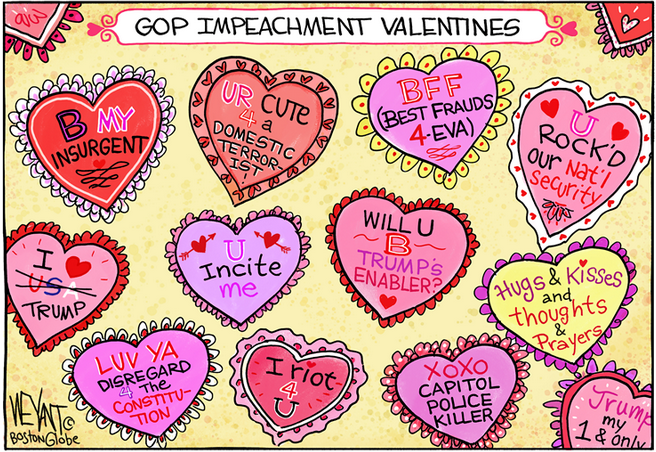 GOP IMPEACHMENT VALENTINES
B MY
INSURGENT
UR CUTE
4 a
DOMESTIC
TERROR
IST
BFF
(BEST FRAUDS
4-EVA)
U
ROCK'D
OUR Nat'l
Security
I ❤
USA
TRUMP
U
Incite
me
WILL U
B
TRUMP'S
ENABLER?
Hugs & Kisses
and
thoughts
&
Prayers
LUV YA
DISREGARD
4 The
CONSTITU-
TION
I riot
4
U
XOXO
CAPITOL
POLICE
KILLER
Trump
my
1 & only
WEYANT ©
Boston Globe